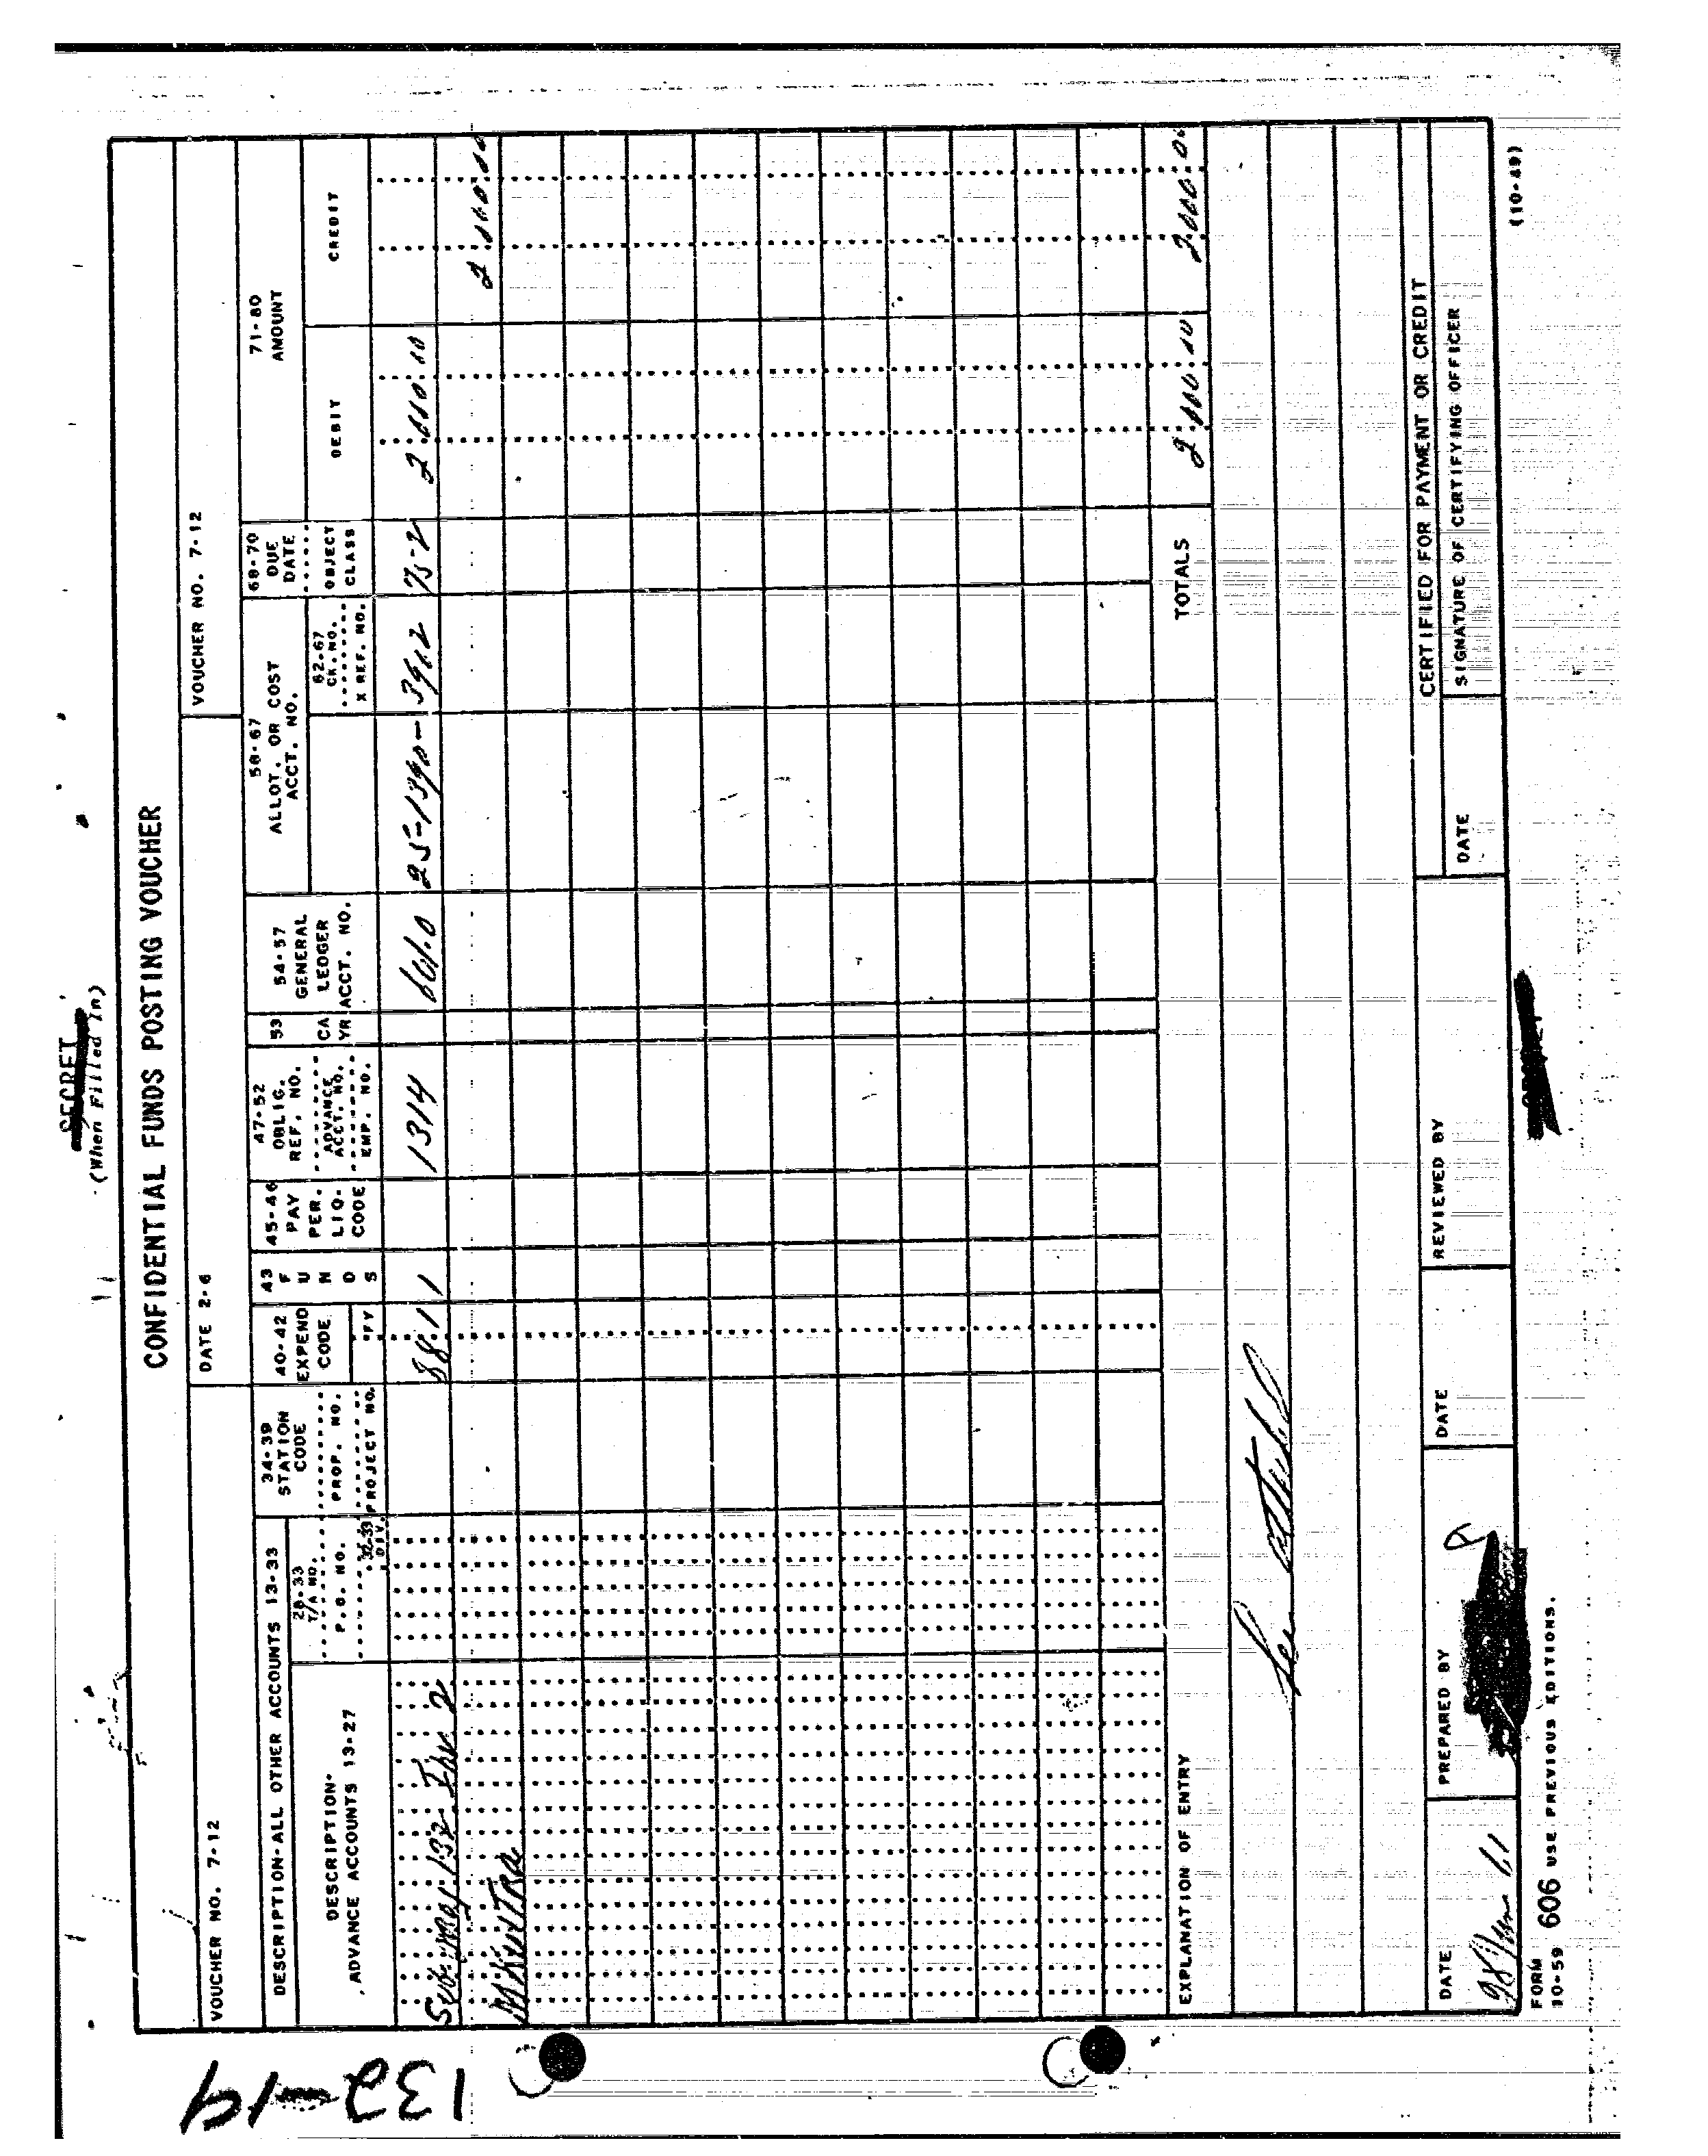 SECRET
(When Filled In)
CONFIDENTIAL FUNDS POSTING VOUCHER
VOUCHER NO. 7-12
DATE 2-6
VOUCHER NO. 7-12
DESCRIPTION-ALL OTHER ACCOUNTS 13-33
DESCRIPTION-
ADVANCE ACCOUNTS 13-27
28-33
T/A NO.
P.O. NO.
32-33
DIV.
34-39
STATION
CODE
PROP. NO.
PROJECT NO.
40-42
EXPEND
CODE
FY
43
F
U
N
D
S
45-46
PAY
PER.
LIQ.
CODE
47-52
OBLIG.
REF. NO.
ADVANCE
ACCT. NO.
EMP. NO.
53
CA
YR
54-57
GENERAL
LEDGER
ACCT. NO.
58-67
ALLOT. OR COST
ACCT. NO.
62-67
CK. NO.
X REF. NO.
68-70
DUE
DATE
OBJECT
CLASS
71-80
AMOUNT
DEBIT
CREDIT
132 2 38.1 1 1314 601.0 25-1390-3902
MKULTRA
EXPLANATION OF ENTRY
TOTALS 2,000.00 2,000.00
See attached
DATE
PREPARED BY
DATE
REVIEWED BY
CERTIFIED FOR PAYMENT OR CREDIT
DATE
SIGNATURE OF CERTIFYING OFFICER
FORM
10-59 606 USE PREVIOUS EDITIONS.
(10-49)
132-19